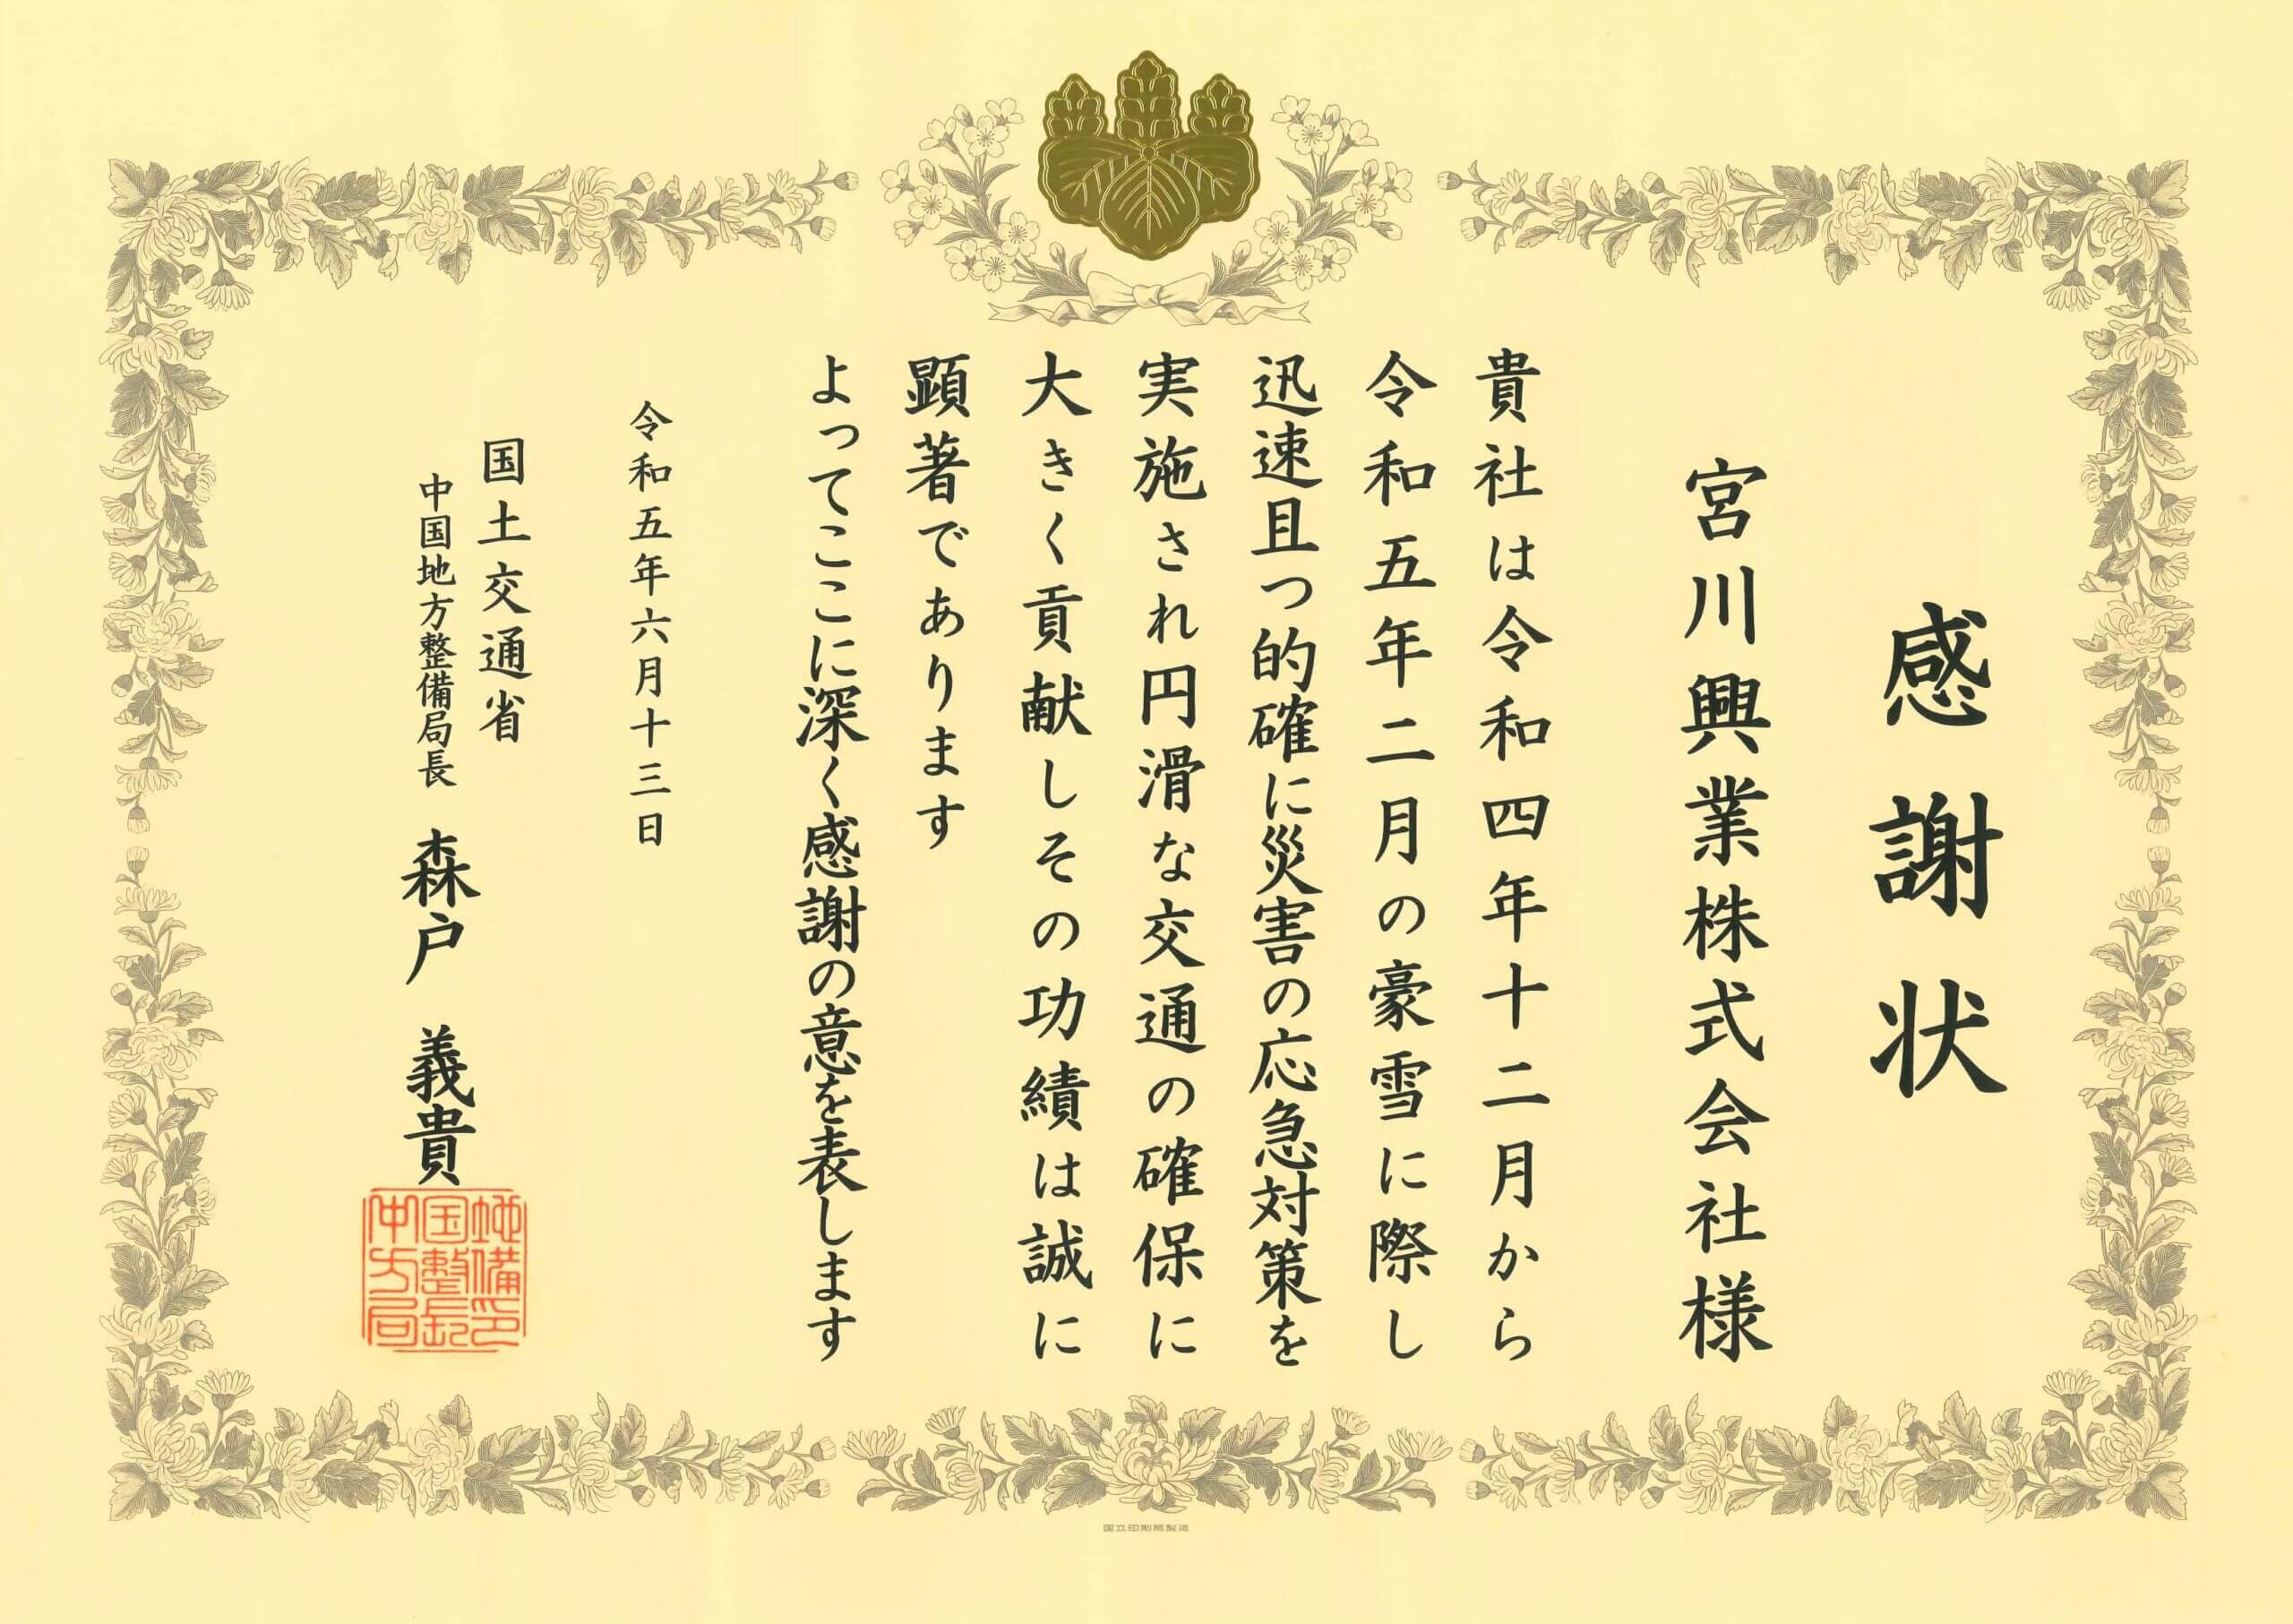 感謝状
宮川興業株式会社様
貴社は令和四年十二月から
令和五年二月の豪雪に際し
迅速且つ的確に災害の応急対策を
実施され円滑な交通の確保に
大きく貢献しその功績は誠に
顕著であります
よってここに深く感謝の意を表します
令和五年六月十三日
国土交通省
中国地方整備局長 森戸 義貴
中国地
方整備
局長印
国立印刷局製造